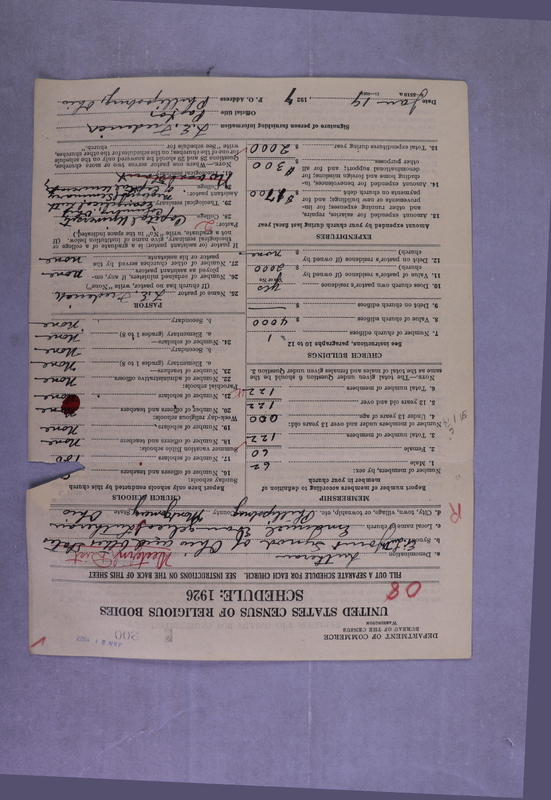 DEPARTMENT OF COMMERCE
BUREAU OF THE CENSUS
WASHINGTON
UNITED STATES CENSUS OF RELIGIOUS BODIES
SCHEDULE: 1926
08
FILL OUT A SEPARATE SCHEDULE FOR EACH CHURCH. SEE INSTRUCTIONS ON THE BACK OF THIS SHEET
a. Denomination Lutheran
b. Synod Joint Synod of Ohio and Other States
Western Dist
c. Local name of church Emanuel Lutheran
d. City, town, village, or township, etc. Phillipsburg Montgomery State Ohio
R
MEMBERSHIP
Report number of members according to definition of member in your church
Number of members, by sex:
1. Male 62
2. Female 60
3. Total number of members 122
Number of members under and over 13 years old:
4. Under 13 years of age 000
5. 13 years old and over 122
6. Total number of members 122
NOTE.—The total given under Question 6 should be the same as the total of males and females given under Question 3.
CHURCH BUILDINGS
See instructions, paragraphs 10 to 12
7. Number of church edifices 1
8. Value of church edifices $ 4000
9. Debt on church edifices $
10. Does church own pastor's residence yes
11. Value of pastor's residence (if owned by church) $ 2000
12. Debt on pastor's residence (if owned by church) $ none
EXPENDITURES
Amount expended by your church during last fiscal year
13. Amount expended for salaries, repairs, and other running expenses; for improvements or new buildings; and for payments on church debt $ 1700
14. Amount expended for benevolences, including home and foreign missions; for denominational support; and for all other purposes $ 300
15. Total expenditures during year $ 2000
CHURCH SCHOOLS
Report here only schools conducted by this church
Sunday schools:
16. Number of officers and teachers
17. Number of scholars 100
Summer vacation Bible schools:
18. Number of officers and teachers None
19. Number of scholars None
Week-day religious schools:
20. Number of officers and teachers
21. Number of scholars None
Parochial schools:
22. Number of administrative officers None
23. Number of teachers—
a. Elementary (grades 1 to 8) None
b. Secondary None
24. Number of scholars—
a. Elementary (grades 1 to 8) None
b. Secondary None
PASTOR
25. Name of pastor
(If church has no pastor, write "None")
26. Number of ordained ministers, if any, employed as assistant pastors none
27. Number of other churches served by the pastor or his assistants none
If pastor or assistant pastor is a graduate of a college or theological seminary, give name of institution below. (If not a graduate, write "No" in the space indicated.)
Pastor:
28. College Capital University
29. Theological seminary
Assistant pastor:
College
Theological seminary
NOTE.—Where one pastor serves two or more churches, Questions 28 and 29 should be answered only on the schedule for one of the churches; on the schedules for the other churches, write "See schedule for church."
Signature of person furnishing information
Official title Pastor
P. O. Address Phillipsburg, Ohio
Date Jan 19, 1927